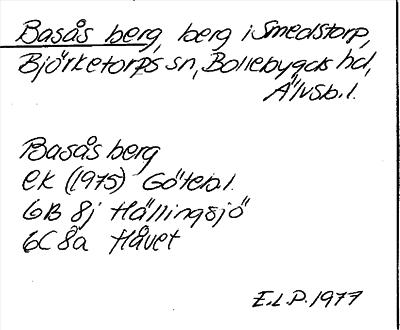 Basås berg, berg i Smedstorp,
Björketorps sn, Bollebygds hd,
Älvsb. l.
Basås berg
ek (1975) Göteb. l.
6B 8j Hällingsjö
6C 8a Håvet
E.L.P. 1977